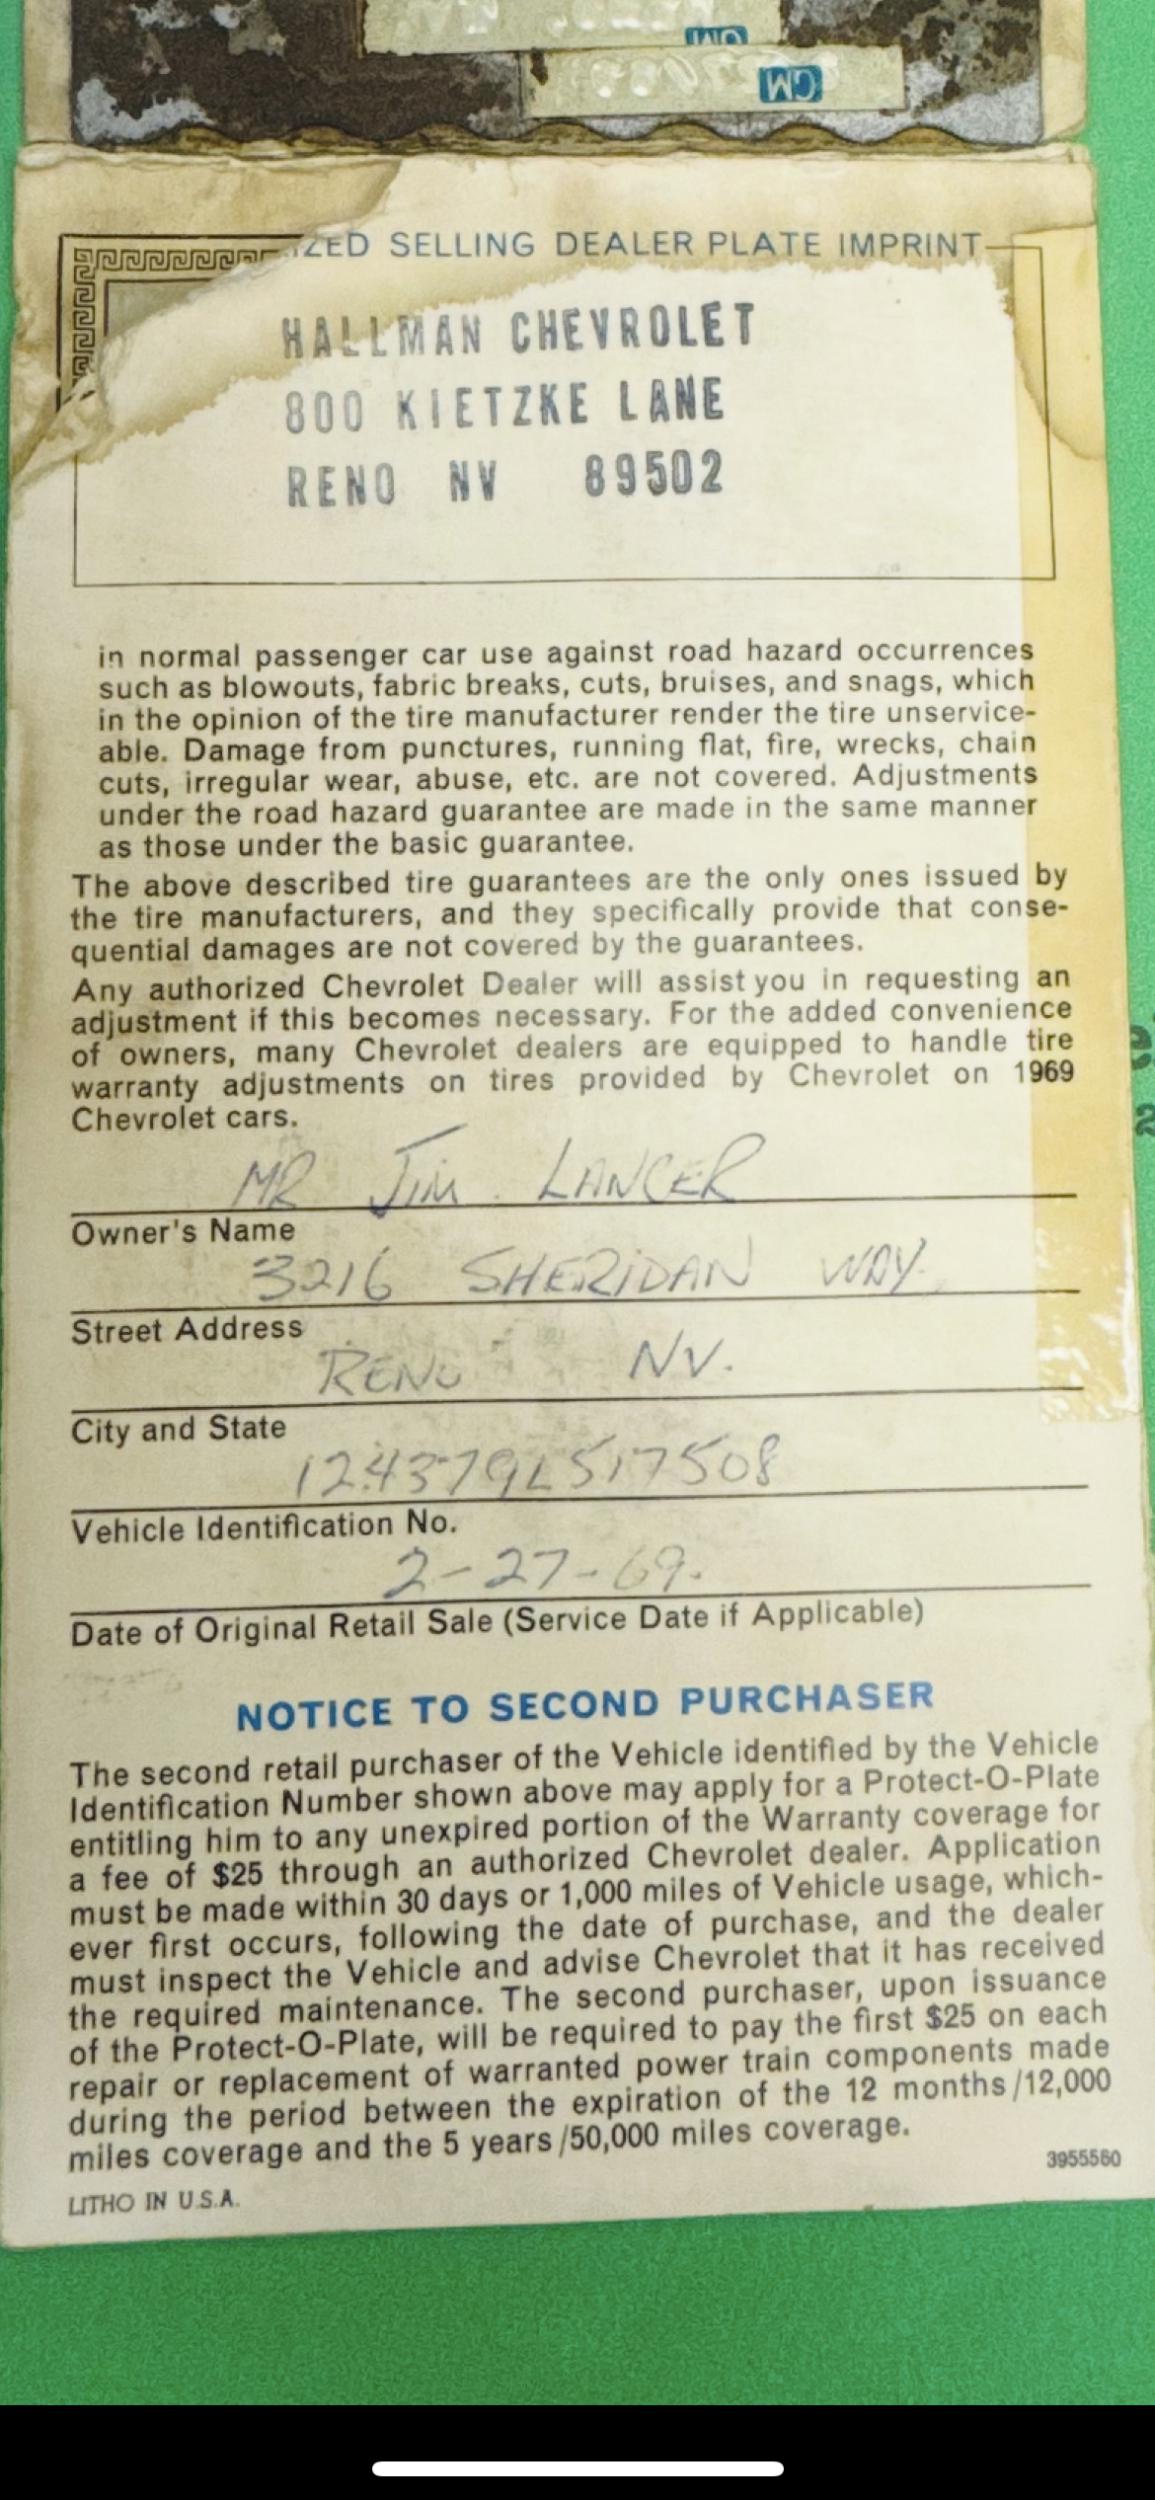 GM
GM
IZED SELLING DEALER PLATE IMPRINT
HALLMAN CHEVROLET
800 KIETZKE LANE
RENO NV 89502
in normal passenger car use against road hazard occurrences
such as blowouts, fabric breaks, cuts, bruises, and snags, which
in the opinion of the tire manufacturer render the tire unservice-
able. Damage from punctures, running flat, fire, wrecks, chain
cuts, irregular wear, abuse, etc. are not covered. Adjustments
under the road hazard guarantee are made in the same manner
as those under the basic guarantee.
The above described tire guarantees are the only ones issued by
the tire manufacturers, and they specifically provide that conse-
quential damages are not covered by the guarantees.
Any authorized Chevrolet Dealer will assist you in requesting an
adjustment if this becomes necessary. For the added convenience
of owners, many Chevrolet dealers are equipped to handle tire
warranty adjustments on tires provided by Chevrolet on 1969
Chevrolet cars.
MR JIM LANCER
Owner's Name
3216 SHERIDAN WAY.
Street Address
RENO NV.
City and State
124379L517508
Vehicle Identification No.
2-27-69.
Date of Original Retail Sale (Service Date if Applicable)
NOTICE TO SECOND PURCHASER
The second retail purchaser of the Vehicle identified by the Vehicle
Identification Number shown above may apply for a Protect-O-Plate
entitling him to any unexpired portion of the Warranty coverage for
a fee of $25 through an authorized Chevrolet dealer. Application
must be made within 30 days or 1,000 miles of Vehicle usage, which-
ever first occurs, following the date of purchase, and the dealer
must inspect the Vehicle and advise Chevrolet that it has received
the required maintenance. The second purchaser, upon issuance
of the Protect-O-Plate, will be required to pay the first $25 on each
repair or replacement of warranted power train components made
during the period between the expiration of the 12 months/12,000
miles coverage and the 5 years/50,000 miles coverage.
3955560
LITHO IN U.S.A.